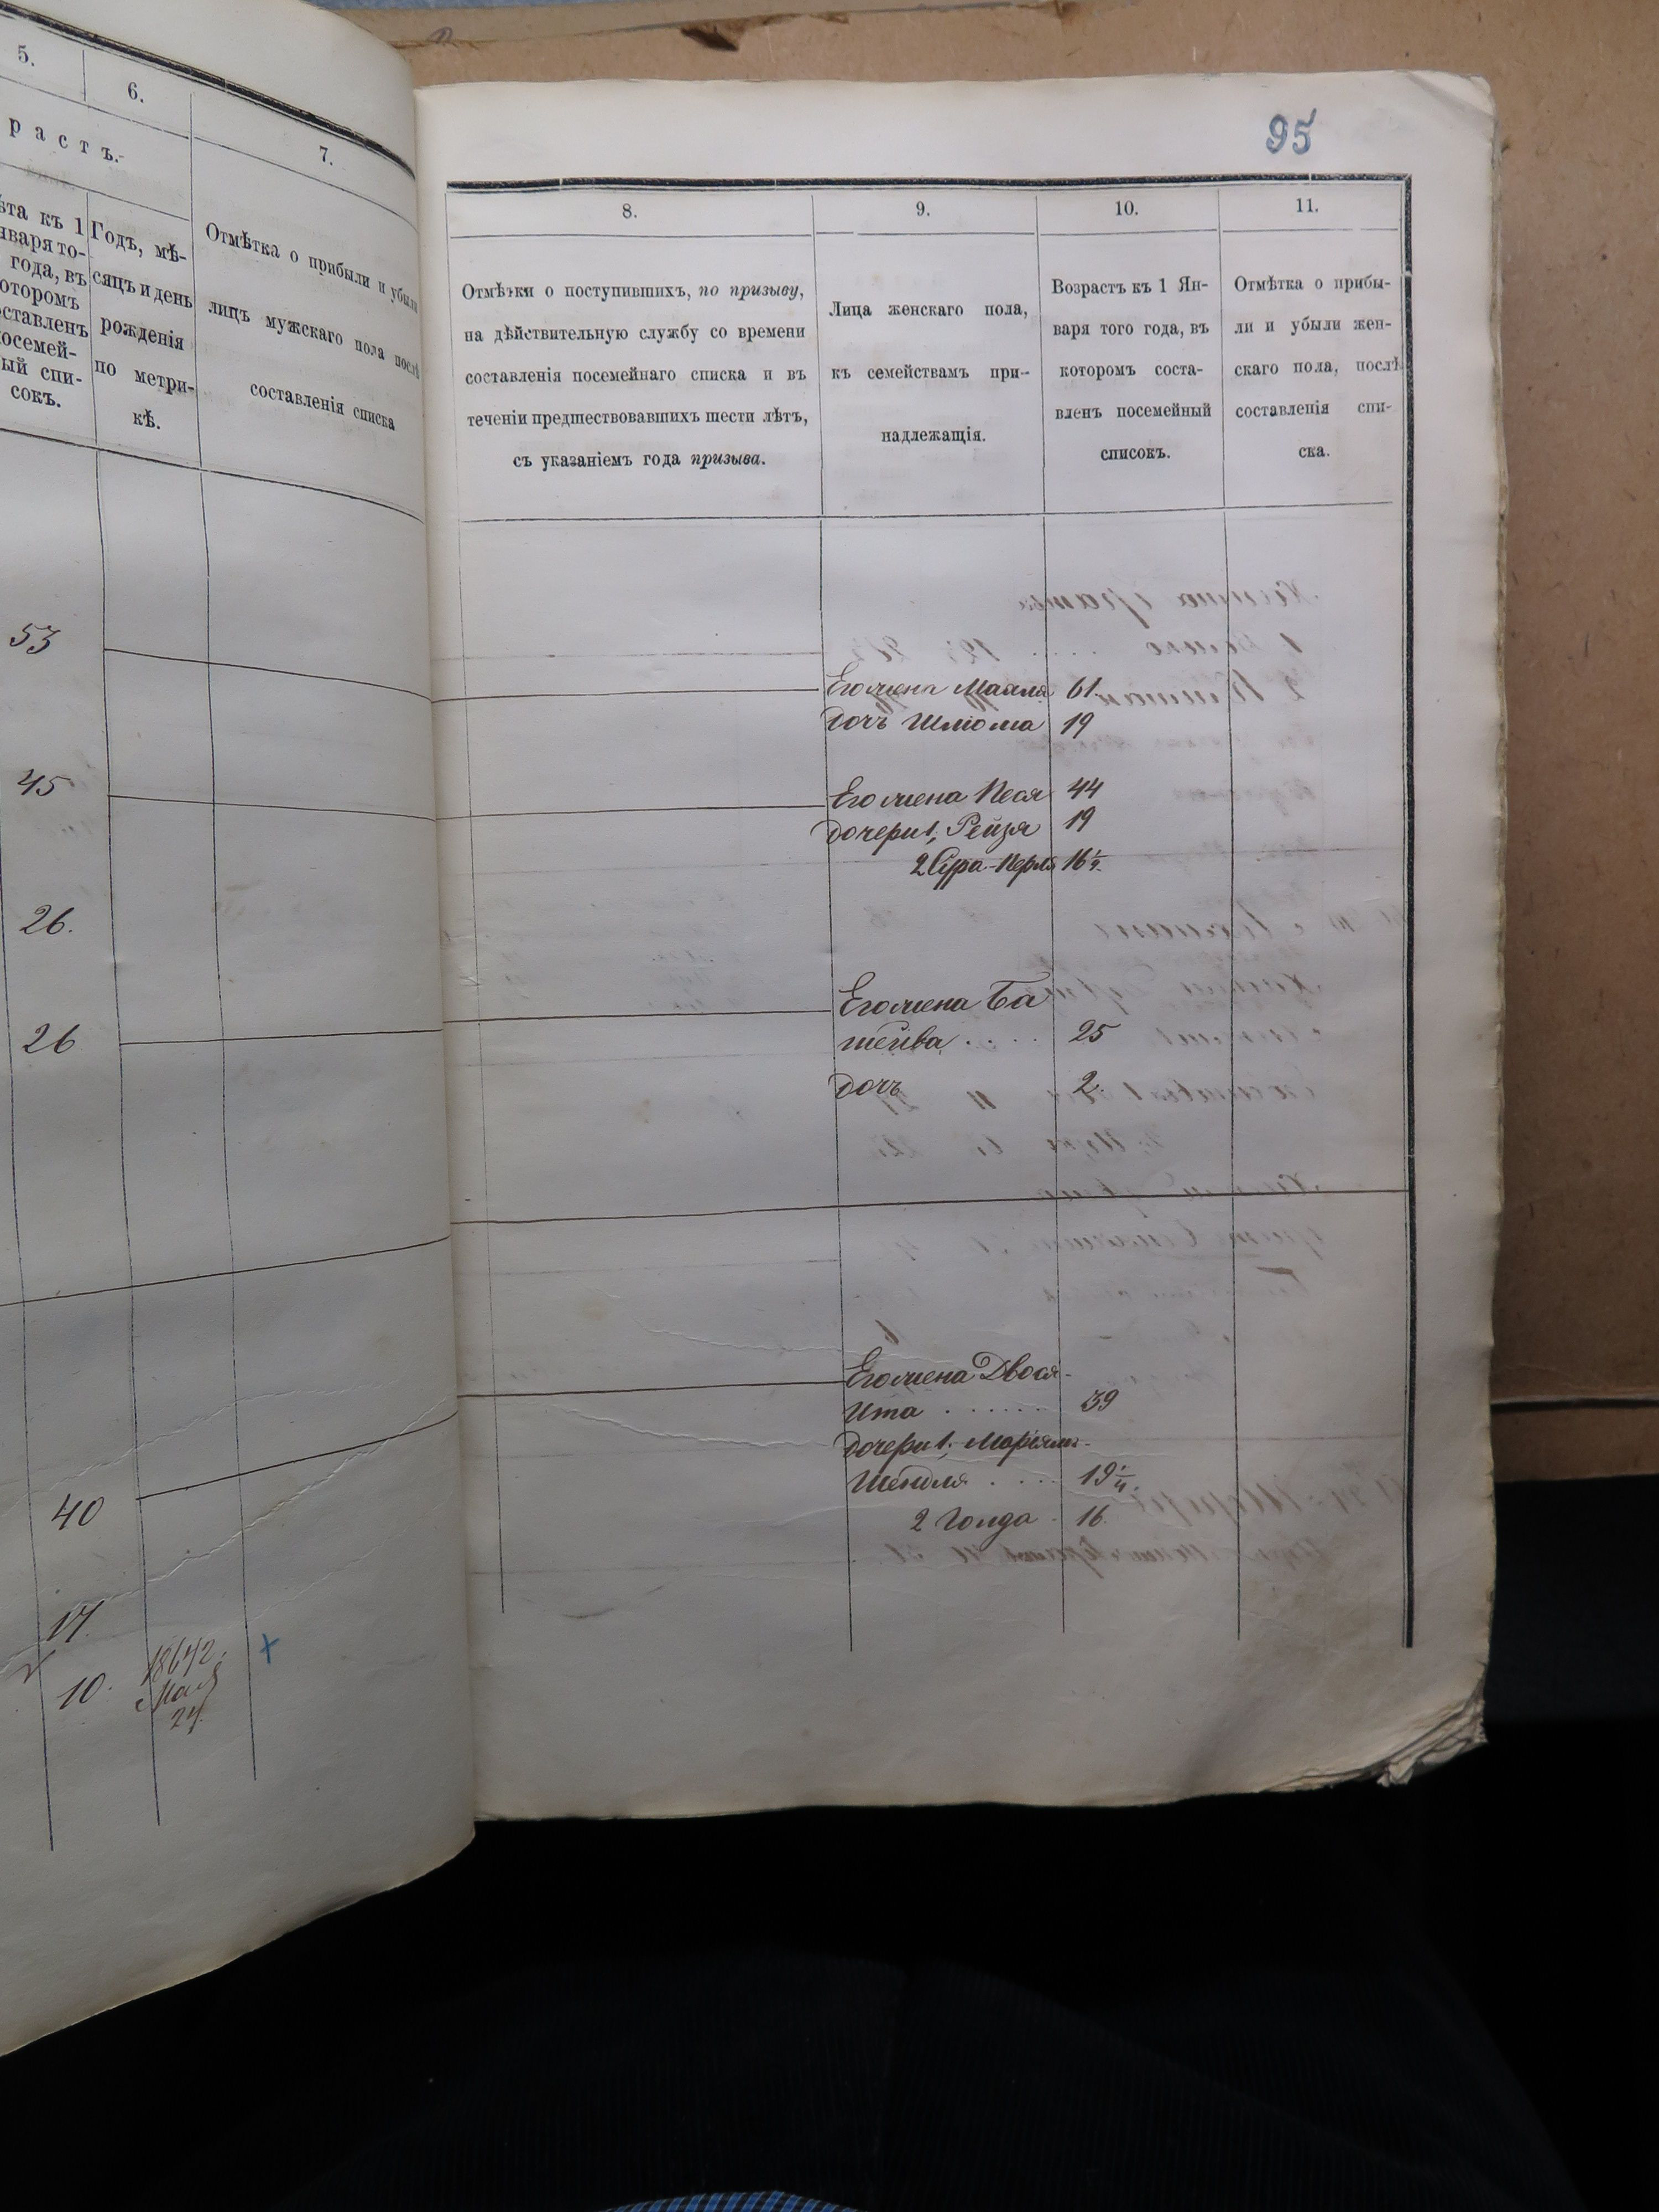 5.
6.
растъ.
7.
ѣта къ 1
нваря то-
года, въ
оторомъ
оставленъ
посемей-
ый спи-
сокъ.
Годъ, мѣ-
сяцъ и день
рожденія
по метри-
кѣ.
Отмѣтка о прибыли и убыли
лицъ мужскаго пола послѣ
составленія списка
53
45
26.
26
40
17.
10.
Мая
24.
95
8.
9.
10.
11.
Отмѣтки о поступившихъ, по призыву,
на дѣйствительную службу со времени
составленія посемейнаго списка и въ
теченіи предшествовавшихъ шести лѣтъ,
съ указаніемъ года призыва.
Лица женскаго пола,
къ семействамъ при-
надлежащія.
Возрастъ къ 1 Ян-
варя того года, въ
которомъ соста-
вленъ посемейный
списокъ.
Отмѣтка о прибы-
ли и убыли жен-
скаго пола, послѣ
составленія спи-
ска.
Его жена Маля 61.
Дочь Шліома 19
Его жена Песя 44
Дочери 1, Рейзя 19
2 Сура-Перля 16½.
Его жена Ба
шейва .... 25
Дочь 2.
Его жена Двося-
Ита ...... 39
Дочери 1, Маріямъ-
Шейндля .... 19
2 Голда - 16.